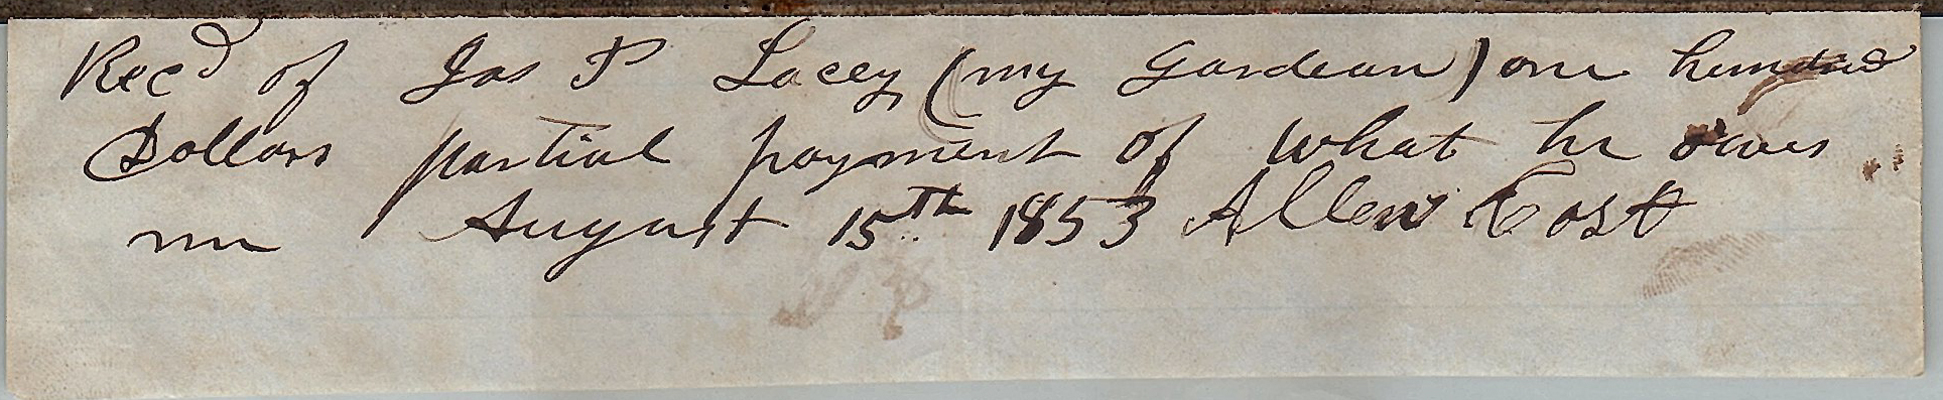 Recd of Jas P Lacey (my Gardean) one hundred
Dollars partial payment of What he owes
me August 15th 1853 Allen East